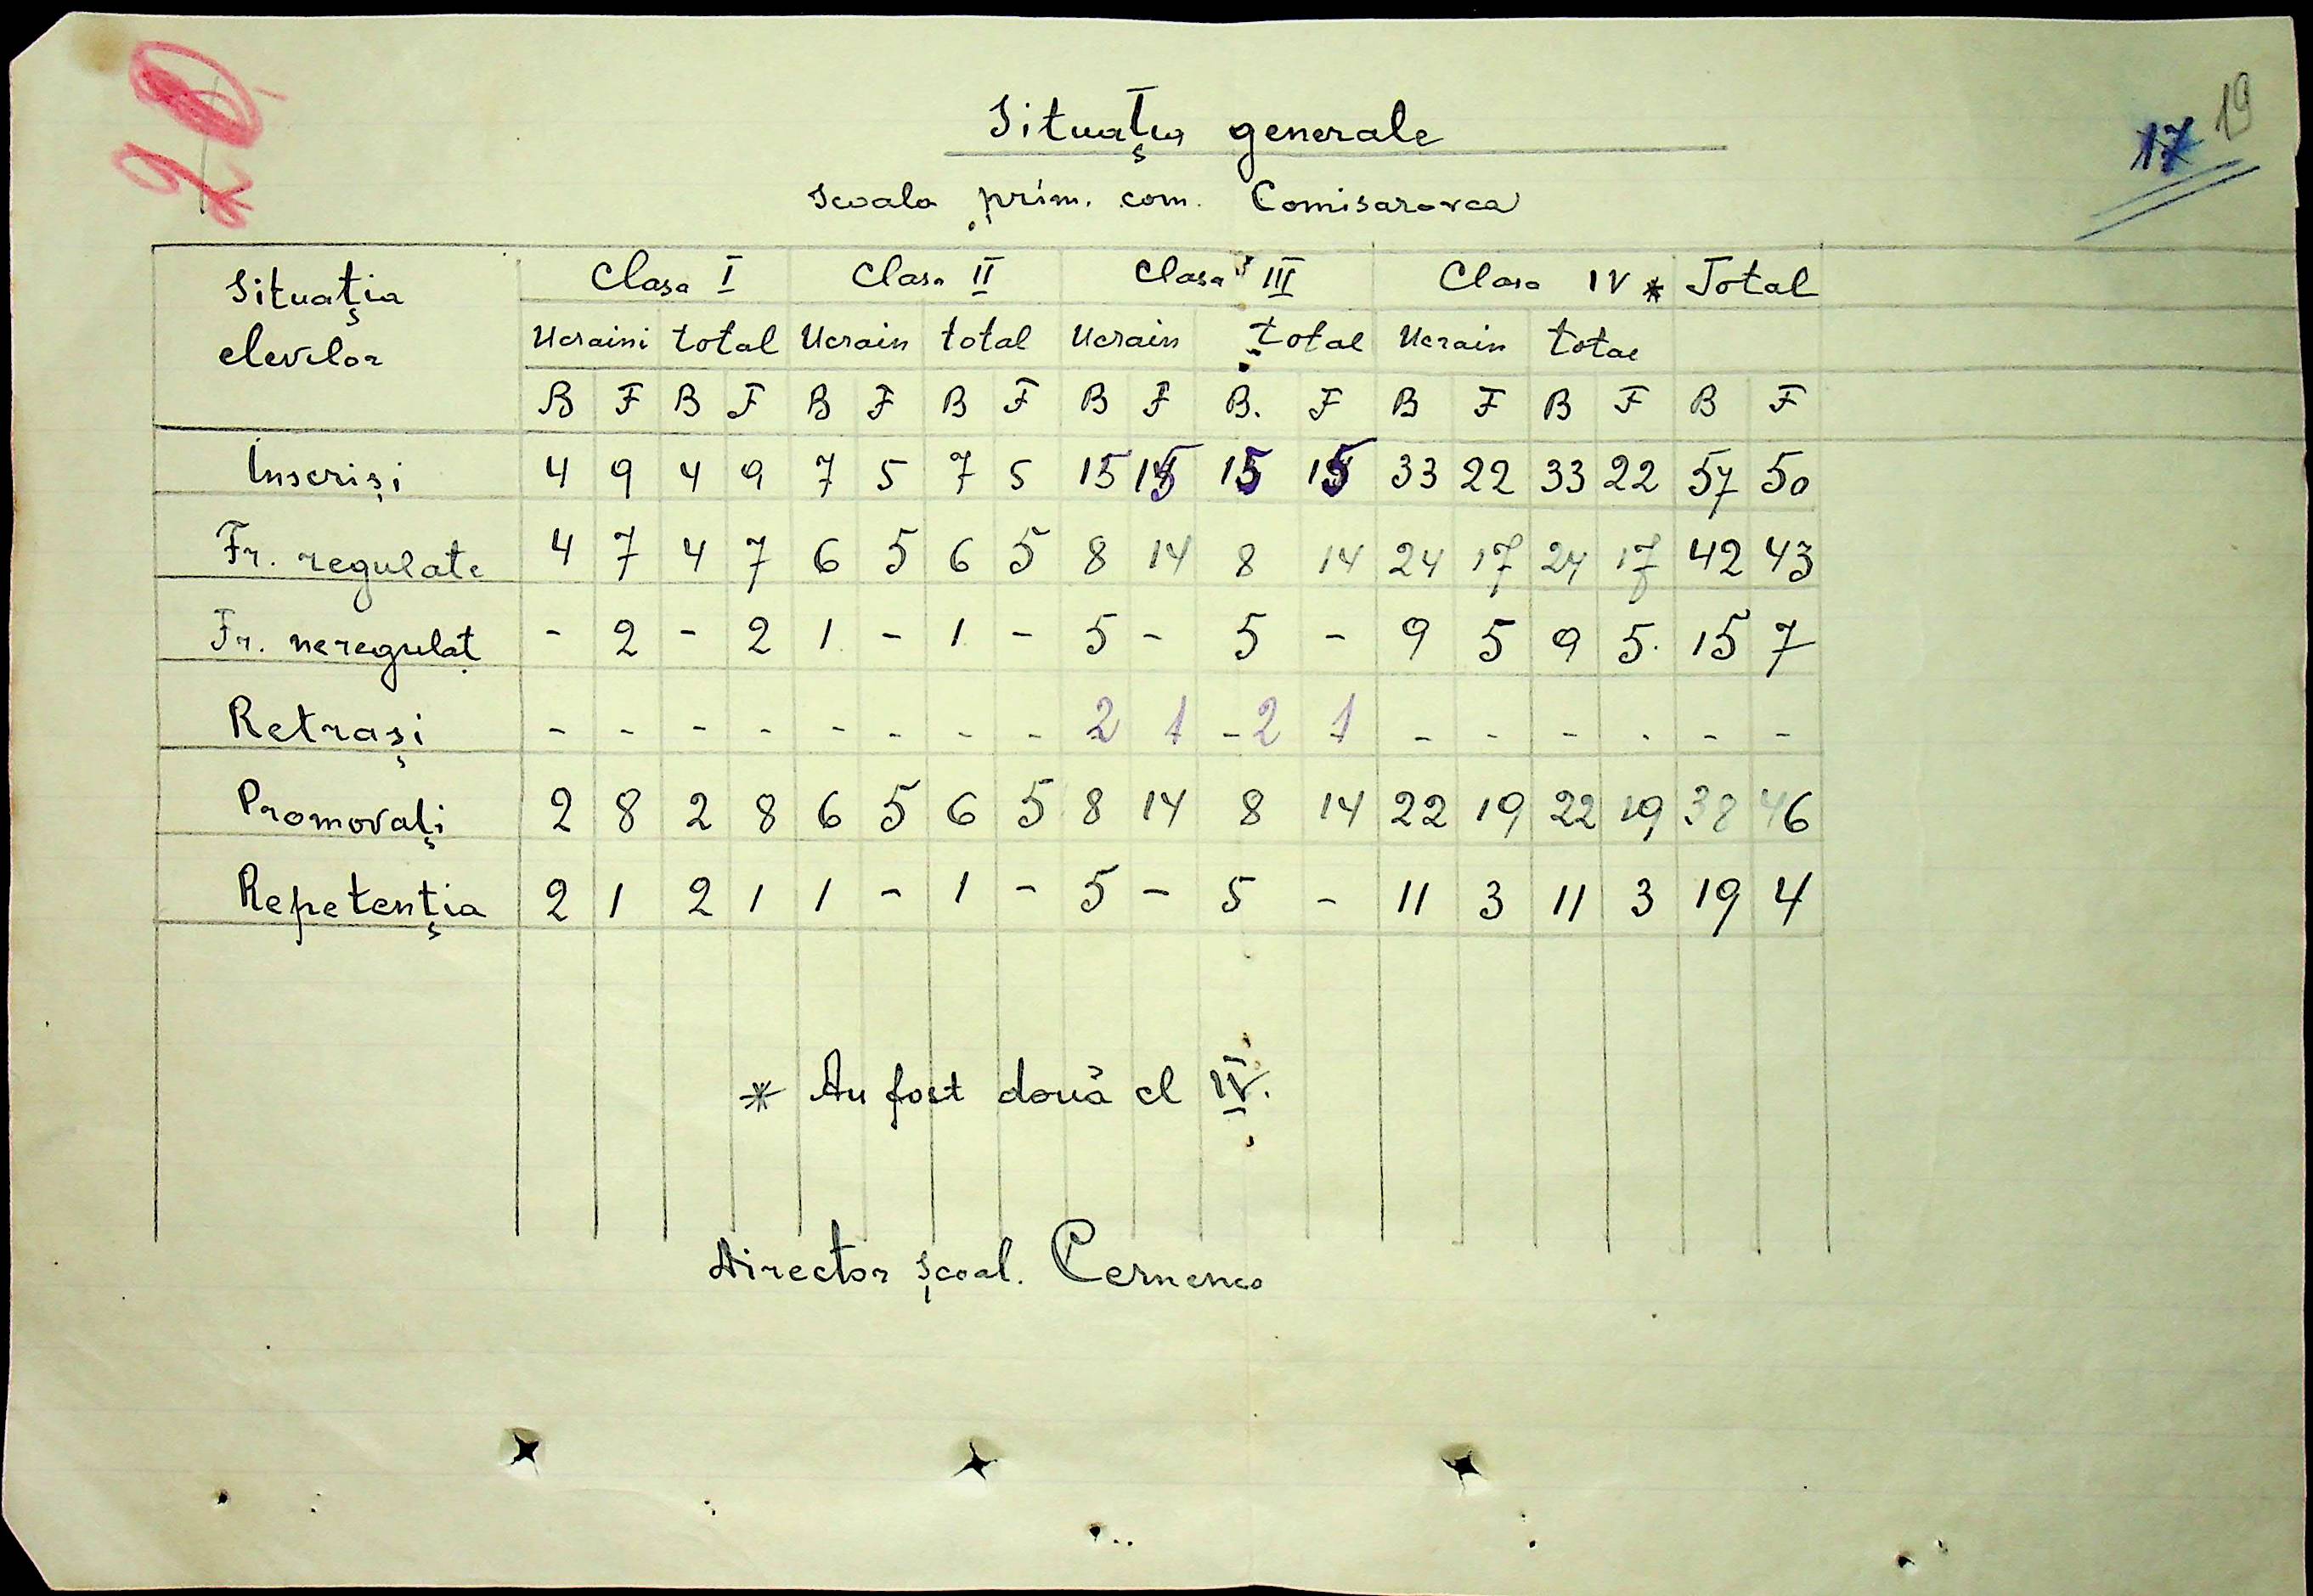 20
17 19
Situația generale
Scoala prim. com. Comisarovca
Situația elevilor Clasa I Clasa II Clasa III Clasa IV * Total
Ucraini total Ucrain total Ucrain total Ucrain total
B F B F B F B F B F B. F B F B F B F
Inscriși 4 9 4 9 7 5 7 5 15 15 15 15 33 22 33 22 57 50
Fr. regulate 4 7 4 7 6 5 6 5 8 14 8 14 24 17 24 17 42 43
Fr. neregulat - 2 - 2 1 - 1 - 5 - 5 - 9 5 9 5. 15 7
Retrași - - - - - - - - 2 1 - 2 1 - - - - - -
Promovați 2 8 2 8 6 5 6 5 8 14 8 14 22 19 22 19 38 46
Repetenția 2 1 2 1 1 - 1 - 5 - 5 - 11 3 11 3 19 4
* Au fost două cl IV.
Director școal. Cernenco